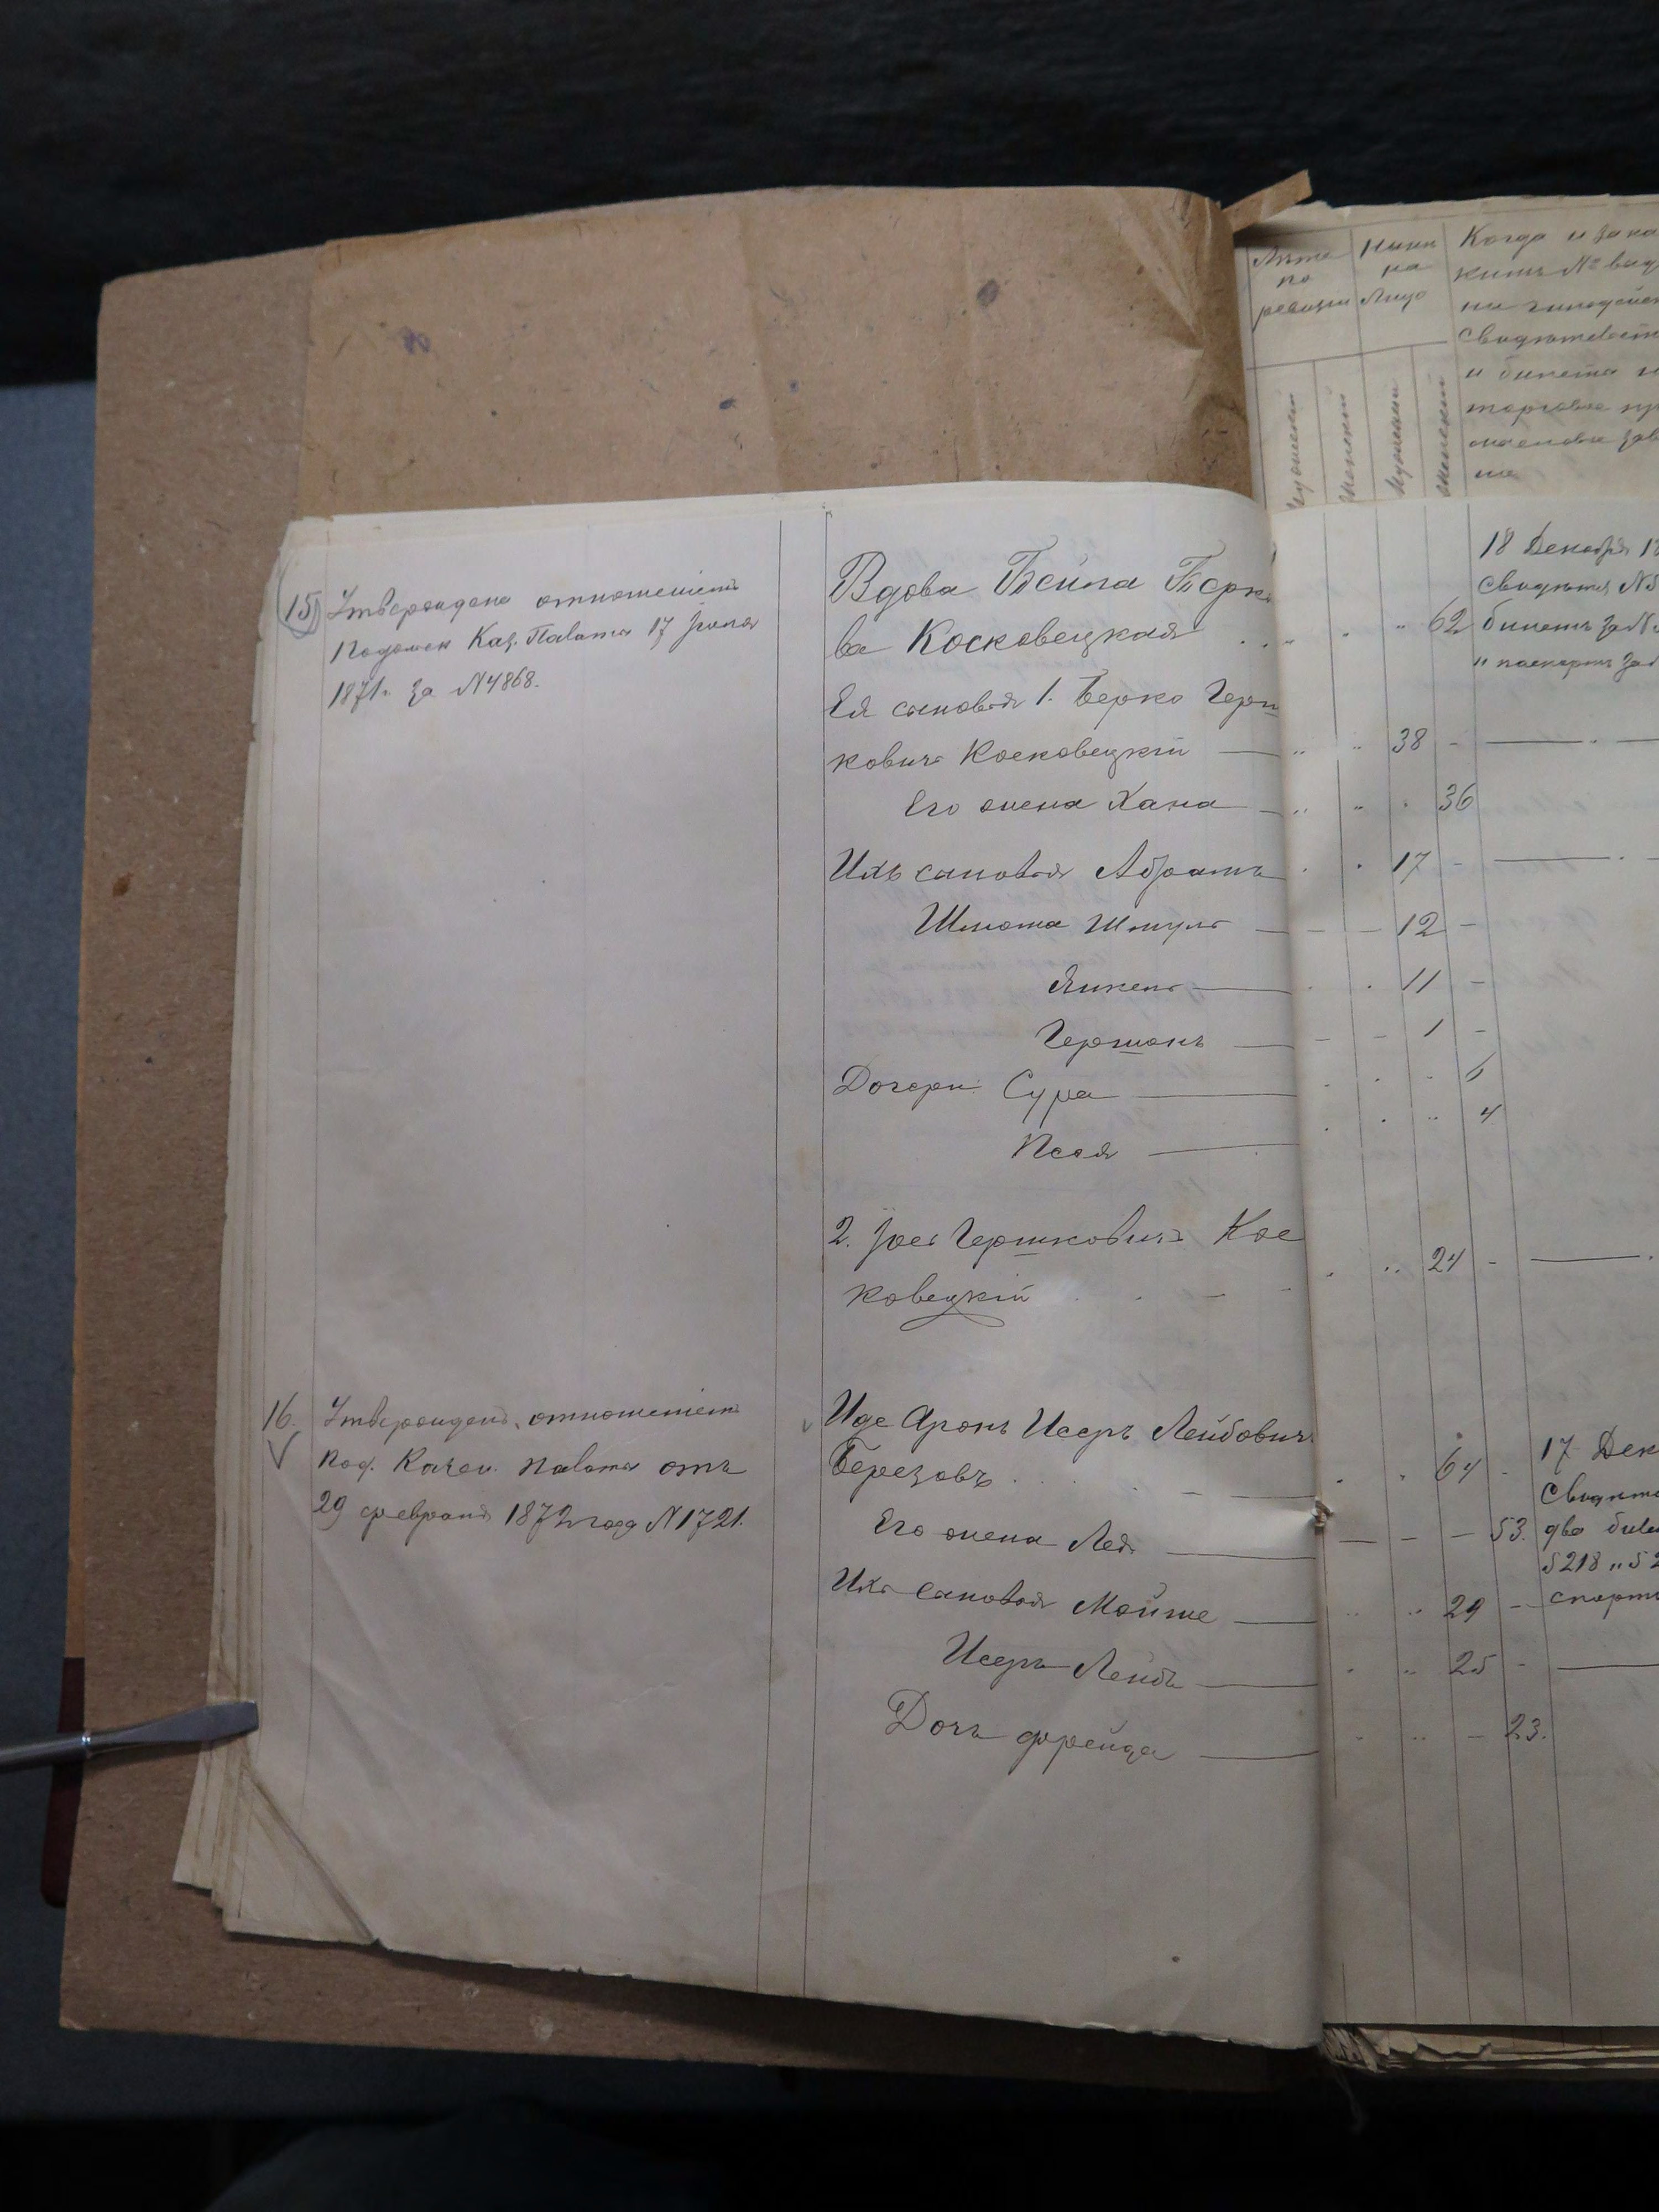 Лѣта
по
ревизіи
Нынѣ
на
Лицо
Когда и за ка
кимъ № выд
Свидѣтельств
и билета
торговые пр
Мужескій
Женскій
Мужескій
Женскій
15) Утверждена отношеніемъ
Подольск Каз. Палаты 17 Іюня
1871г. за №4868.
Вдова Бейла Берко
ва Косковецкая
62
18 Декабря 18
Свидѣт №5
билетъ за №
" паспортъ за
Ея сыновья 1. Берко Герш
ковичъ Косковецкій — 38
Его жена Хана — 36
Ихъ сыновья Абрамъ 17
Шліома Шмуль — 12
Янкель — 11
Гершонъ — 1
Дочери Сура — 6
Песя — 4
2. Іось Гершковичъ Кос
ковецкій
24
16. Утвержденъ отношеніемъ
Под. Казен. Палаты отъ
29 февраля 1872 года №1721.
Иде Аронъ Исеръ Лейбовичъ
Березовъ 64
17 Дек
Свидѣт
Его жена Лея — 53.
два биле
5218 " 52
Ихъ сыновья Мойше — 29
спортъ
Исеръ Лейбъ — 25
Дочь Фрейда — 23.